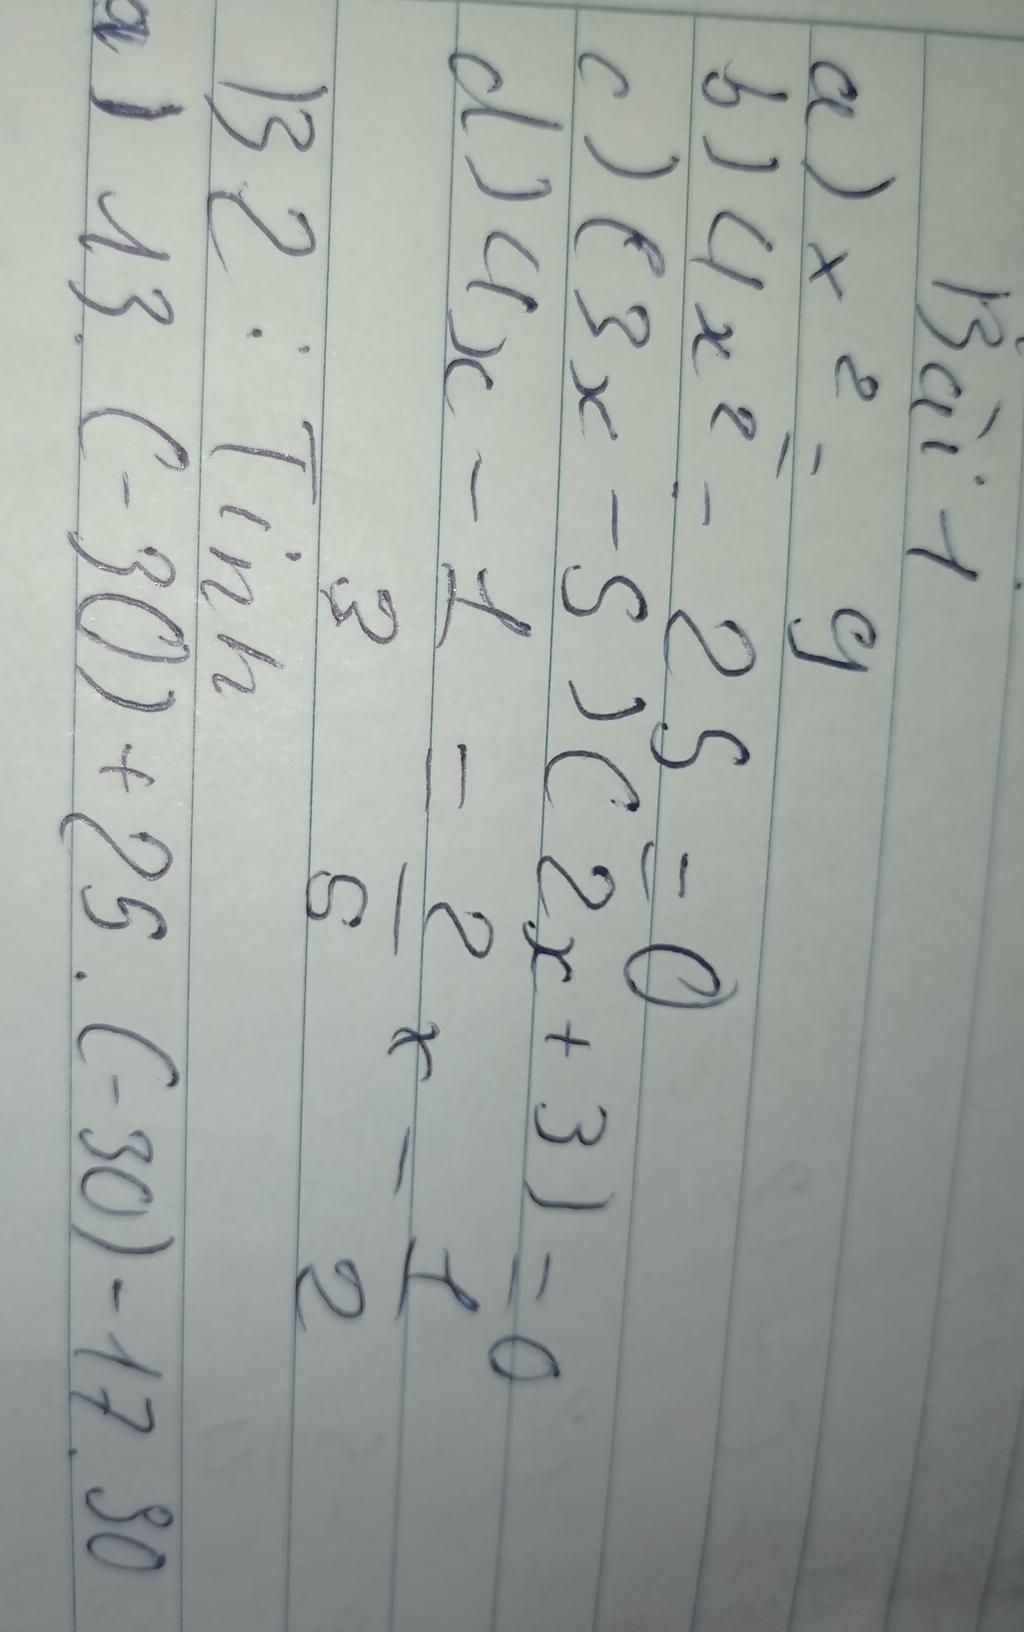 Bài 1
a) x² = 9
b) 4x² - 25 = 0
c) (3x - 5)(2x + 3) = 0
d) 4x - 1/3 = 2/5 x - 1/2
B2: Tính
a) 13.(-30) + 25.(-30) - 17.30